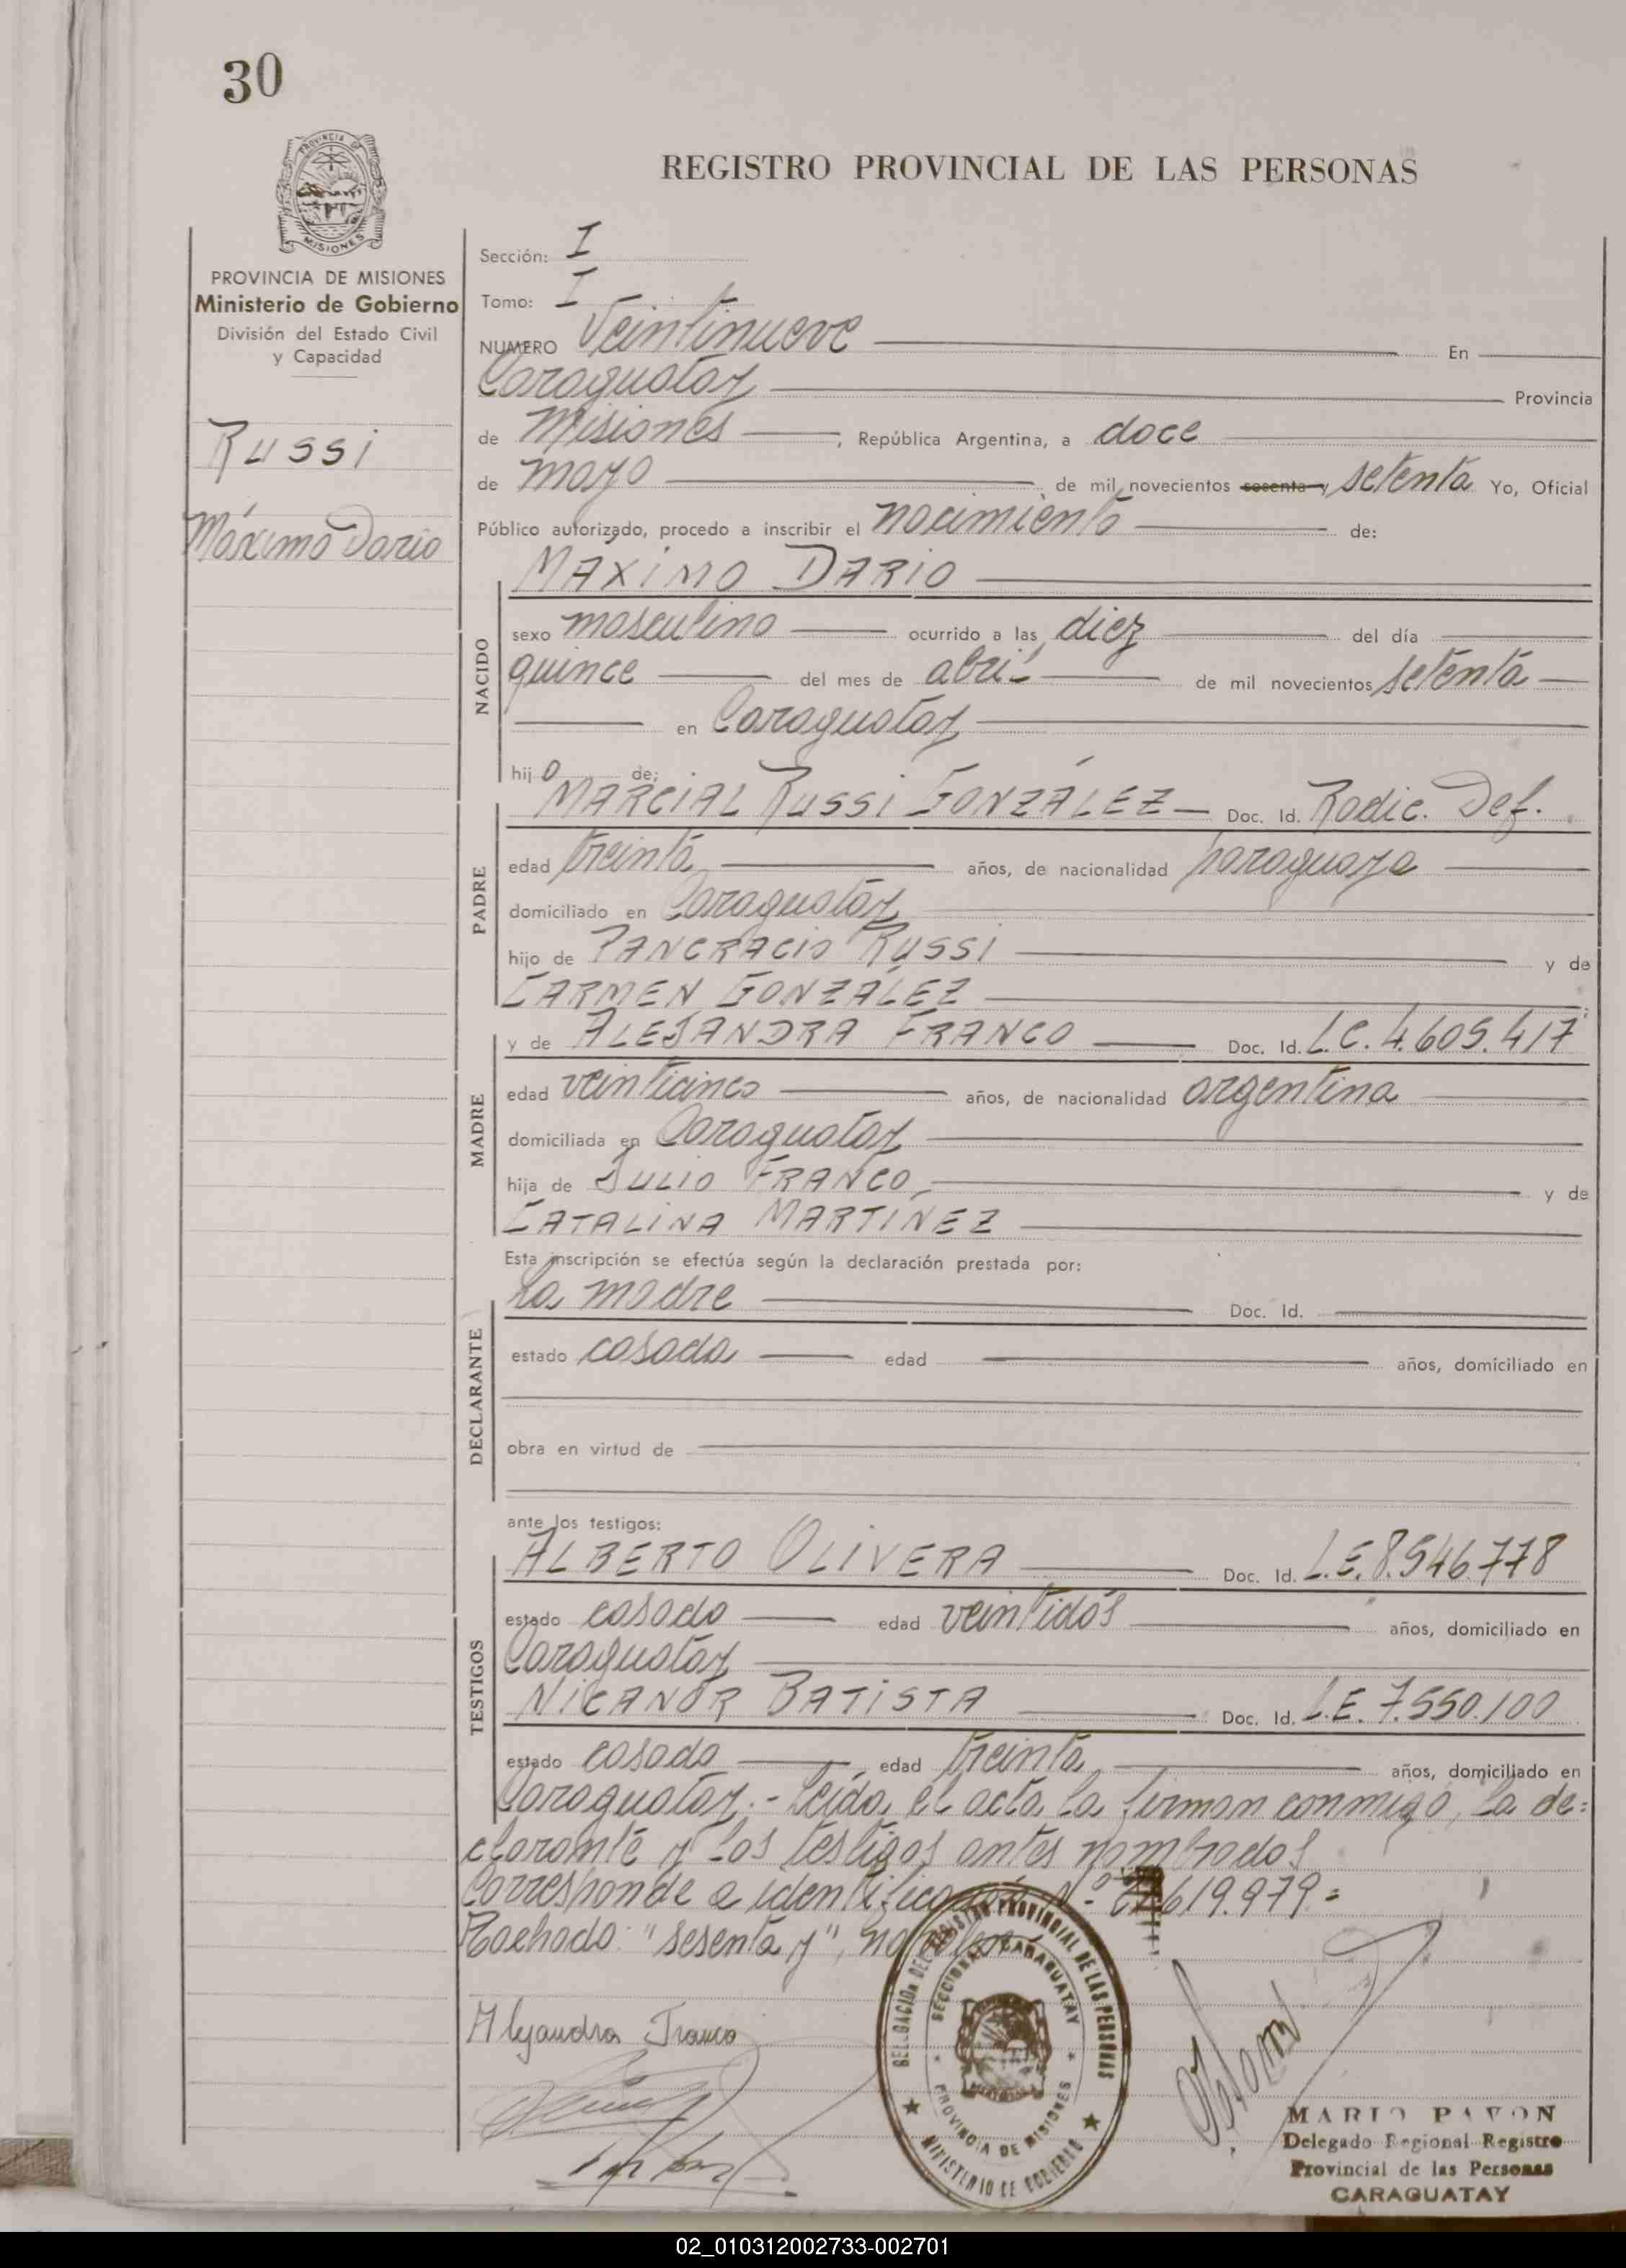 30
PROVINCIA DE
MISIONES
REGISTRO PROVINCIAL DE LAS PERSONAS
PROVINCIA DE MISIONES
Ministerio de Gobierno
División del Estado Civil
y Capacidad
Russi
Máximo Darío
Sección: I
Tomo: I
NUMERO Veintinueve En
Caraguatay Provincia
de Misiones, República Argentina, a doce
de mayo de mil novecientos sesenta y setenta Yo, Oficial
Público autorizado, procedo a inscribir el nacimiento de:
NACIDO
MÁXIMO DARIO
sexo masculino ocurrido a las diez del día
quince del mes de abril de mil novecientos setenta
en Caraguatay
hijo de:
PADRE
MARCIAL RUSSI GONZÁLEZ Doc. Id. Radic. Def.
edad treinta años, de nacionalidad paraguaya
domiciliado en Caraguatay
hijo de PANCRACIO RUSSI y de
CARMEN GONZÁLEZ
MADRE
y de ALEJANDRA FRANCO Doc. Id. L.C. 4.605.417
edad veinticinco años, de nacionalidad argentina
domiciliada en Caraguatay
hija de JULIO FRANCO y de
CATALINA MARTÍNEZ
DECLARANTE
Esta inscripción se efectúa según la declaración prestada por:
La madre Doc. Id.
estado casada edad años, domiciliado en
obra en virtud de
TESTIGOS
ante los testigos:
ALBERTO OLIVERA Doc. Id. L.E. 8.546.778
estado casado edad veintidós años, domiciliado en
Caraguatay
NICANOR BATISTA Doc. Id. L.E. 7.550.100
estado casado edad treinta años, domiciliado en
Caraguatay.- Leída el acta la firman conmigo, la de=
clarante y los testigos antes nombrados
Corresponde a identificación Nº 619.979=
Tachado: "sesenta y", no
Alejandra Franco
DELEGACION DEL REGISTRO PROVINCIAL DE LAS PERSONAS
SECCIONAL CARAGUATAY
PROVINCIA DE MISIONES
MINISTERIO DE GOBIERNO
MARIO PAVON
Delegado Regional Registro
Provincial de las Personas
CARAGUATAY
02_010312002733-002701